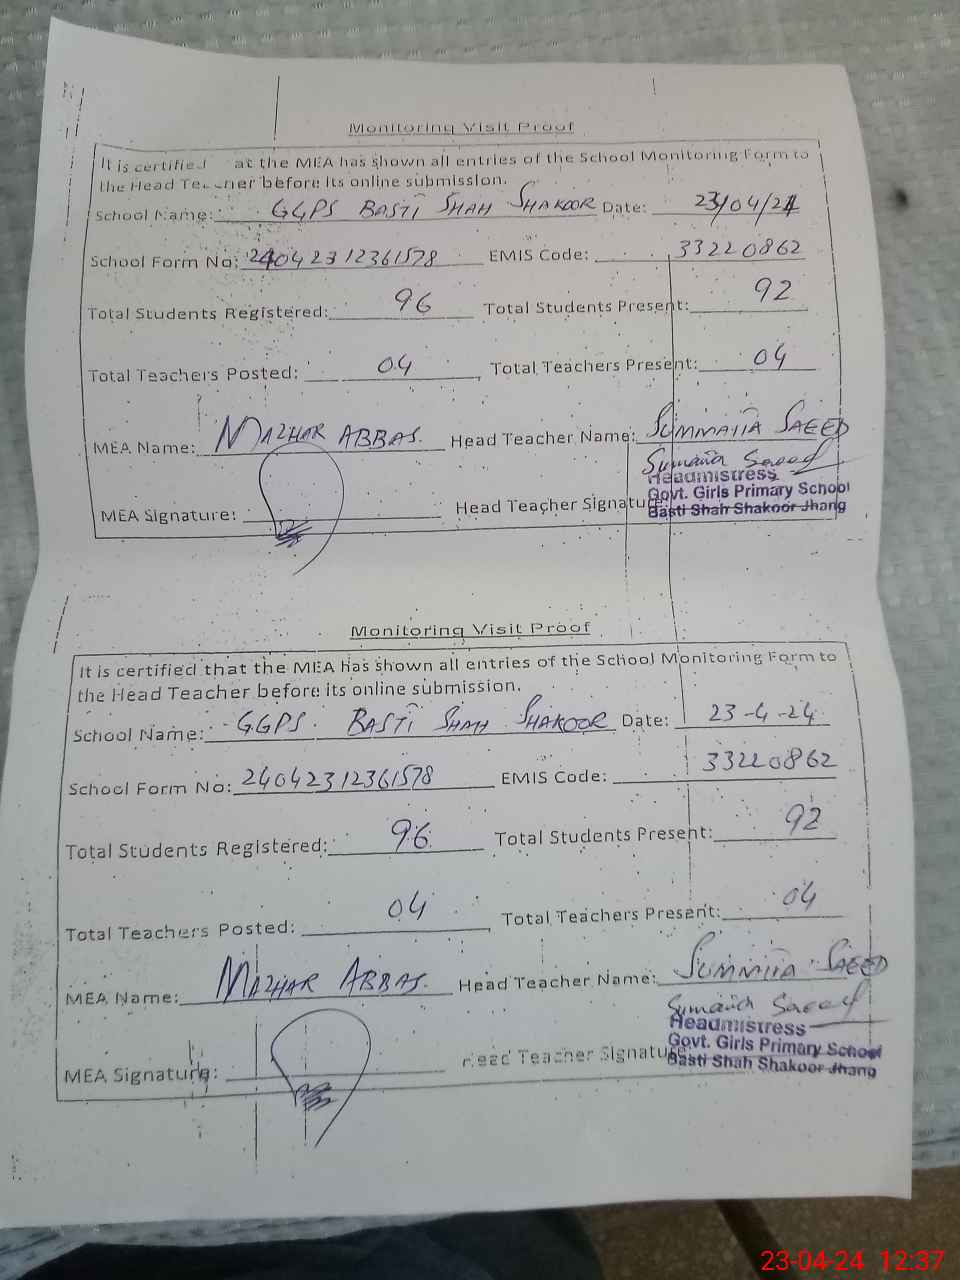 Monitoring Visit Proof
It is certified at the MEA has shown all entries of the School Monitoring Form to
the Head Teacher before its online submission.
School Name: GGPS BASTI SHAH SHAKOOR Date: 23/04/24
School Form No: 24042312361578 EMIS Code: 33220862
Total Students Registered: 96 Total Students Present: 92
Total Teachers Posted: 04 Total Teachers Present: 04
MEA Name: MAZHAR ABBAS. Head Teacher Name: SUMMAIIA SAEED
Sumaira Saeed
Headmistress
MEA Signature: Head Teacher Signature: Govt. Girls Primary School
Basti Shah Shakoor Jhang
Monitoring Visit Proof
It is certified that the MEA has shown all entries of the School Monitoring Form to
the Head Teacher before its online submission.
School Name: GGPS. BASTI SHAH SHAKOOR Date: 23-4-24
School Form No: 24042312361578 EMIS Code: 33220862
Total Students Registered: 96 Total Students Present: 92
Total Teachers Posted: 04 Total Teachers Present: 04
MEA Name: MAZHAR ABBAS. Head Teacher Name: SAEED
Saeed
Headmistress
MEA Signature: Head Teacher Signature: Govt. Girls Primary School
Basti Shah Shakoor Jhang
23-04-24 12:37